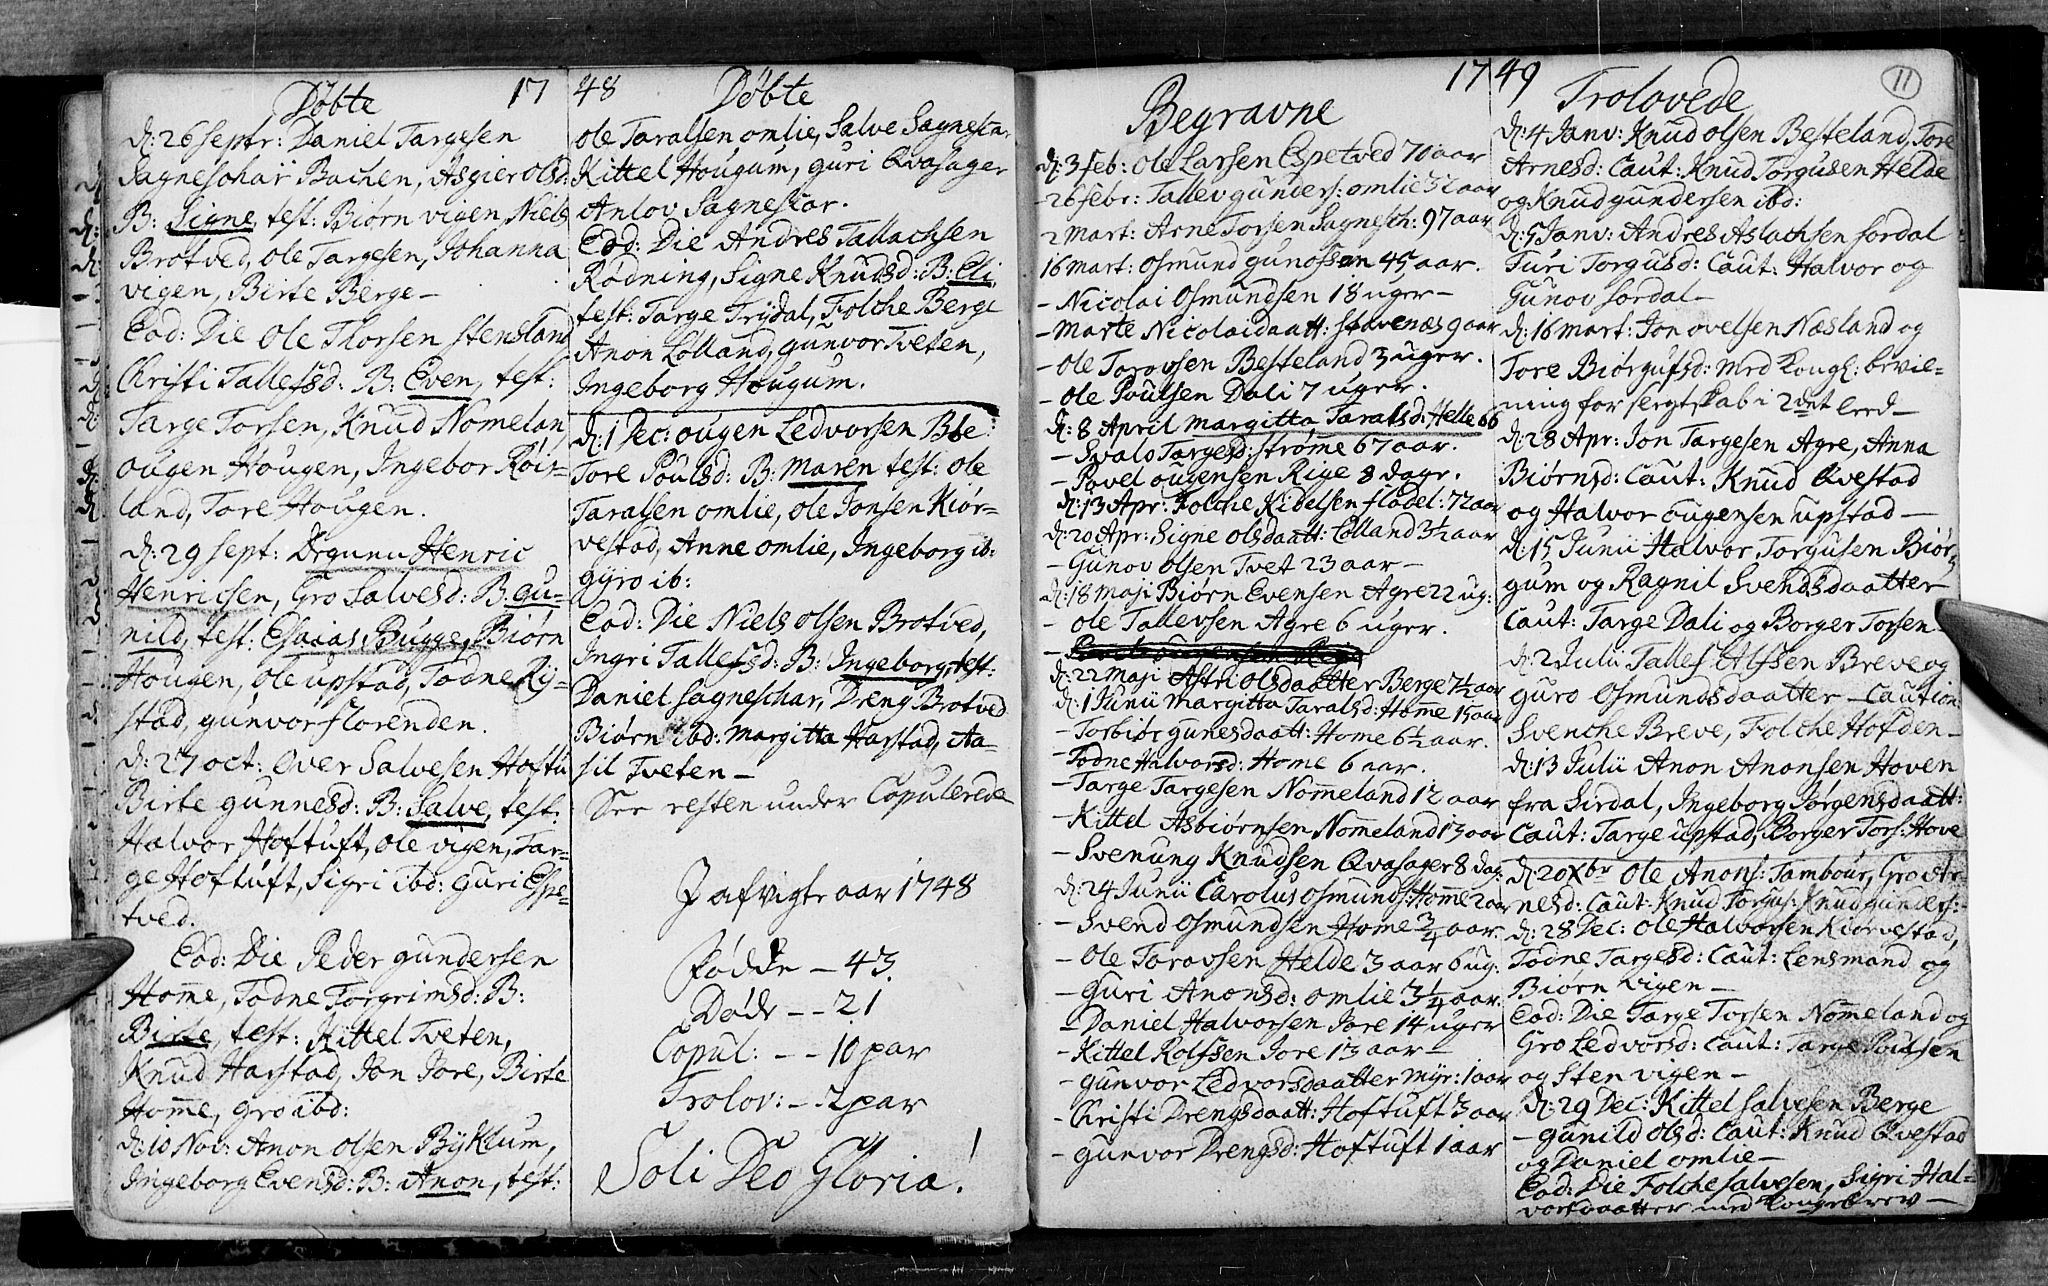 1748
Døbte
d: 26 Septr: Daniel Targesen
Sagneschar Bachen, Asgier olsd:
B: Signe, test: Biørn vigen, Niels
Brotved, ole Targesen, Johanna
vigen, Birte Berge –
Eod: Die Ole Thorsen Stensland
Christi Tallefsd: B: Even, test:
Targe Torsen, Knud Nomelan
ougen Hougen, Ingebor Röis=
land, Tore Hougen.
d: 29 sept: Drgunu Henric
Henricsen, Gro Salvesd: B: gu=
nild, test: Esaias Bugge, Biørn
Hougen, ole upstad, Todne Ry=
stad, gunvor florenden.
d: 27 oct: Over Salvesen Hoftu
Birte gunnesd: B: Salve, test:
Halvor Hoftuft, ole vigen, Tar=
ge Hoftuft, Sigri ibd: Guri Espe=
tved.
Eod: Die Peder gundersen
Home, Todne Torgrimsd: B:
Birte, test: Kittel Tveten,
Knud Harstad, Jon Jore, Birte
Home, gro ibd:
d: 10 Nov: Anon olsen Bÿklum,
Ingeborg Evensd: B: Anon, test:
Døbte
ole Taralsen omlie, Salve Sagnescar
Kittel Hougum, guri Qvasager
Anlov Sagnescar.
Eod: Die Andres Tallachsen
Rødning, Signe Knudsd: B: Eli,
test: Targe Trydal, Folche Berge
Anon Lolland, gunvor Tveten,
Ingeborg Hougum.
d: 1 Dec: ougen Ledvorsen Ble:
Tore Poulsd: B: Maren test: ole
Taralsen omlie, ole Jonsen Kiør=
vestad, Anne omlie, Ingeborg ib:
gÿro ib:
Eod: Die Niels olsen Brotved,
Ingri Tallefsd: B: Ingeborg, test:
Daniel Sagneschar, Dreng Brotved
Biørn ibd: Margitta Harstad, Aa=
sil Tveten –
See resten under Copulerede
J afvigte aar 1748
Fødde – 43
Døde – – 21
Copul: – – 10 par
Trolov: – 2 par
Soli Deo Gloria!
1749
11
Begravne
d: 3 Feb: Ole Larsen Espetved 70 aar
– 26 febr: Tallev gunders: omlie 32 aar
2 Mart: Arne Torsen Sagnesch: 97 aar
16 Mart: Osmund gunofsen 45 aar.
– Nicolai Osmundsen 18 uger –
– Marte Nicolaidaatt: Stavenæs 9 aar
– Ole Torovsen Besteland 3 uger.
– Ole Poulsen Dali 7 uger.
d: 8 April Margitta Taralsd: Helle 66
– Svalo Targesd: Strøme 67 aar.
– Povel ougensen Rige 8 dage.
d: 13 Apr: Folche Kidelsen flådel: 72 aar
d: 20 Apr: Signe Olsdaatt: Lolland 3½ aar
– Gunov olsen Tvet 23 aar –
d: 18 Maji Biørn Evensen Agre 22 ug:
– ole Tallevsen Agre 6 uger.
d: 22 Maji Astri olsdaatter Berge 7½ aar
d: 1 Junii Margitta Taralsd: Home 15 aar
– Torbiør gunesdaatt: Home 6½ aar.
– Todne Halvorsd: Home 6 aar.
– Targe Targesen Nomeland 12 aar
– Kittel Asbiørnsen Nomeland 13 aar
– Svenung Knudsen Qvasager 8 dag:
d: 24 Junii Carolus Osmunds: Home 2 aar
– Svend Osmundsen Home ¾ aar.
– Ole Toravsen Helde 3 aar 6 ug:
– Guri Anonsd: omlie 3¼ aar.
– Daniel Halvorsen Jore 14 uger
– Kittel Rolfsen Jore 13 aar –
– gunvor Ledvorsdaatter Myr: 1 aar
– Christi Drengsdaatt: Hoftuft 3 aar
– gunvor Drengsd: Hoftuft 1 aar
Trolovede
d: 4 Janv: Knud olsen Besteland, Tore
Arnesd: Caut: Knud Torgusen Helde
og Knud gundersen ibd:
d: 5 Janv: Andres Aslachsen Sordal
Turi Torgusd: Caut: Halvor og
Gunov Sordal –
d: 16 Mart: Jon ovelsen Næsland og
Tore Biørgufsd: Med Kongl: bevil=
ning for slegtskab i 2det leed –
d: 28 Apr: Jon Targesen Agre, Anna
Biørnsd: Caut: Knud Qvestad
og Halvor ougensen upstad –
d: 15 Junii Halvor Torgusen Biør=
gum og Ragnil Svendsdaatter
Caut: Targe Dali og Borger Torsen –
d: 2 Julii Tallef Alfsen Breve og
guro Osmundsdaatter – Caution:
Svenche Breve, Folche Hofden –
d: 13 Julii Anon Anonsen Hoven
fra Sirdal, Ingeborg Jørgensdaatt:
Caut: Targe upstad, Borger Tors: Hove
d: 20 Xbr Ole Anons: Tambour, Gro Ar=
nesd: Caut: Knud Torgus: Knud gunders: –
d: 28 Dec: Ole Halvorsen Kiørvestad,
Todne Targesd: Caut: Lensmand og
Biørn vigen –
Eod: Die Targe Torsen Nomeland og
Gro Ledvorsd: Caut: Targe Poulsen
og Sten vigen –
d: 29 Dec: Kittel Salvesen Berge
– gunild olsd: Caut: Knud Qvestad
og Daniel omlie –
Eod: Die Folche Salvesen, Sigri Hal=
vorsdaatter med Kongebrev –